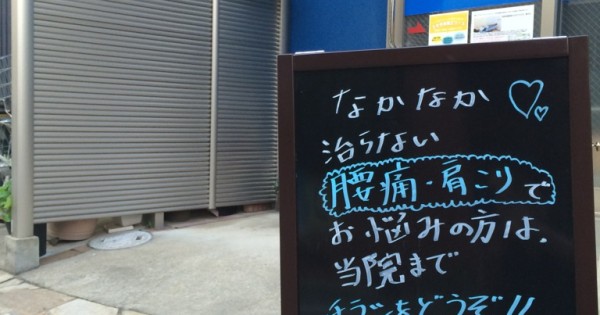 なかなか
治らない
腰痛・肩こりで
お悩みの方は、
当院まで
をどうぞ!!